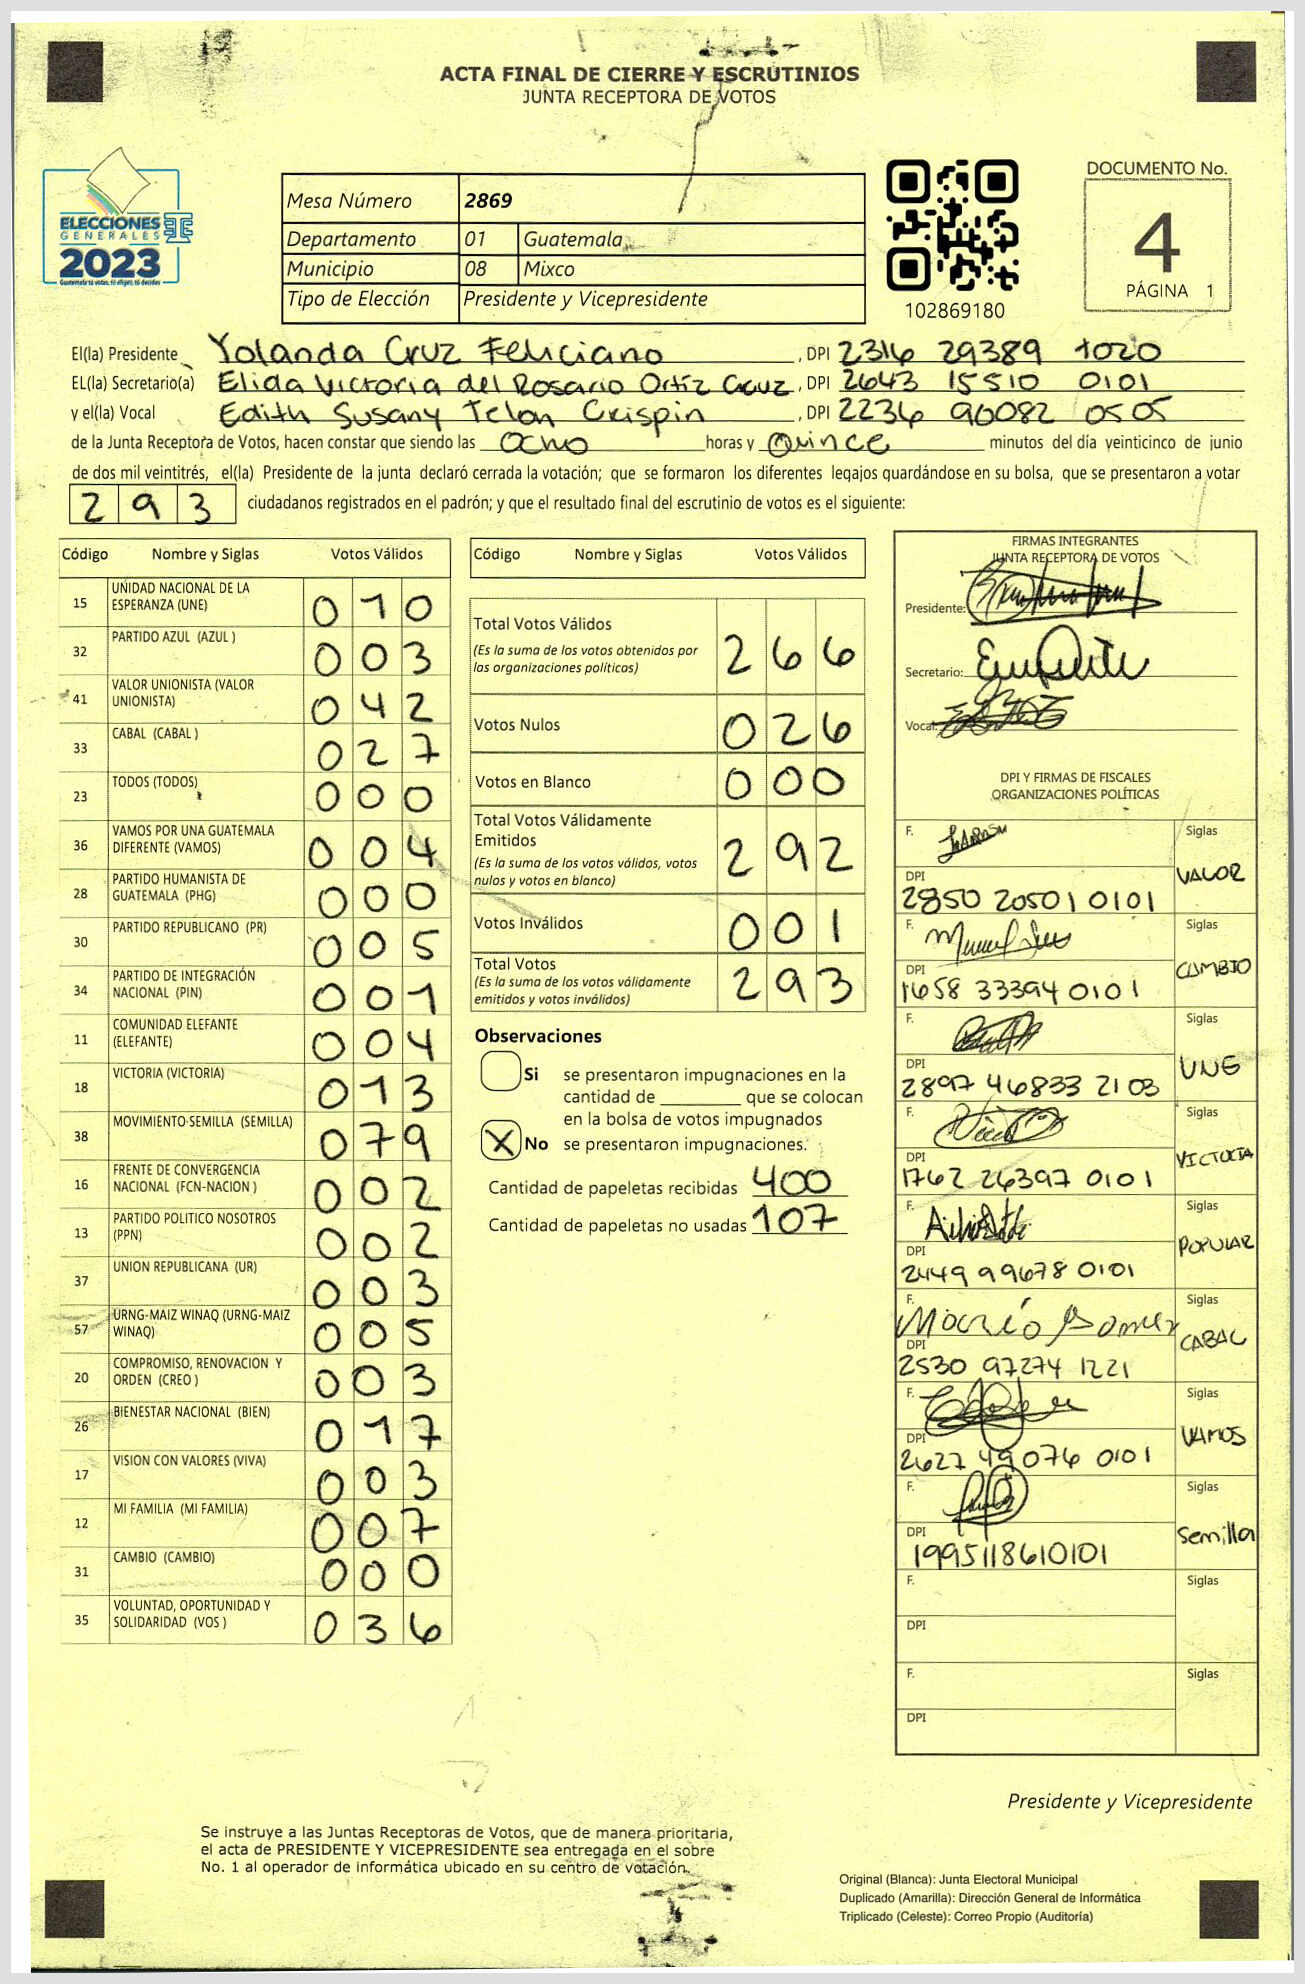 ACTA FINAL DE CIERRE Y ESCRUTINIOS
JUNTA RECEPTORA DE VOTOS
ELECCIONES
GENERALES
2023
Guatemala tú votas, tú eliges, tú decides
Mesa Número 2869
Departamento 01 Guatemala
Municipio 08 Mixco
Tipo de Elección Presidente y Vicepresidente
102869180
DOCUMENTO No.
4
PÁGINA 1
El(la) Presidente Yolanda Cruz Feliciano, DPI 2316 29389 1020
EL(la) Secretario(a) Elida Victoria del Rosario Ortíz Cruz, DPI 2643 15510 0101
y el(la) Vocal Edith Susany Telon Crispin, DPI 2236 90082 0505
de la Junta Receptora de Votos, hacen constar que siendo las Ocho horas y Quince minutos del día veinticinco de junio
de dos mil veintitrés, el(la) Presidente de la junta declaró cerrada la votación; que se formaron los diferentes legajos quardándose en su bolsa, que se presentaron a votar
293 ciudadanos registrados en el padrón; y que el resultado final del escrutinio de votos es el siguiente:
Código Nombre y Siglas Votos Válidos
15 UNIDAD NACIONAL DE LA ESPERANZA (UNE) 010
32 PARTIDO AZUL (AZUL ) 003
41 VALOR UNIONISTA (VALOR UNIONISTA) 042
33 CABAL (CABAL ) 027
23 TODOS (TODOS) 000
36 VAMOS POR UNA GUATEMALA DIFERENTE (VAMOS) 004
28 PARTIDO HUMANISTA DE GUATEMALA (PHG) 000
30 PARTIDO REPUBLICANO (PR) 005
34 PARTIDO DE INTEGRACIÓN NACIONAL (PIN) 001
11 COMUNIDAD ELEFANTE (ELEFANTE) 004
18 VICTORIA (VICTORIA) 013
38 MOVIMIENTO SEMILLA (SEMILLA) 079
16 FRENTE DE CONVERGENCIA NACIONAL (FCN-NACION ) 002
13 PARTIDO POLITICO NOSOTROS (PPN) 002
37 UNION REPUBLICANA (UR) 003
57 URNG-MAIZ WINAQ (URNG-MAIZ WINAQ) 005
20 COMPROMISO, RENOVACION Y ORDEN (CREO ) 003
26 BIENESTAR NACIONAL (BIEN) 017
17 VISION CON VALORES (VIVA) 003
12 MI FAMILIA (MI FAMILIA) 007
31 CAMBIO (CAMBIO) 000
35 VOLUNTAD, OPORTUNIDAD Y SOLIDARIDAD (VOS ) 036
Código Nombre y Siglas Votos Válidos
Total Votos Válidos 266
(Es la suma de los votos obtenidos por
las organizaciones políticas)
Votos Nulos 026
Votos en Blanco 000
Total Votos Válidamente
Emitidos 292
(Es la suma de los votos válidos, votos
nulos y votos en blanco)
Votos Inválidos 001
Total Votos 293
(Es la suma de los votos válidamente
emitidos y votos inválidos)
Observaciones
Si se presentaron impugnaciones en la
cantidad de ________ que se colocan
en la bolsa de votos impugnados
X No se presentaron impugnaciones.
Cantidad de papeletas recibidas 400
Cantidad de papeletas no usadas 107
FIRMAS INTEGRANTES
JUNTA RECEPTORA DE VOTOS
Presidente:
Secretario:
Vocal:
DPI Y FIRMAS DE FISCALES
ORGANIZACIONES POLÍTICAS
F. Siglas
DPI VALOR
2850 20501 0101
F. Siglas
DPI CAMBIO
1658 33394 0101
F. Siglas
DPI UNE
2897 46833 2103
F. Siglas
DPI VICTORIA
1762 26397 0101
F. Siglas
DPI POPULAR
2449 99678 0101
F. Mario Gomez Siglas
DPI CABAL
2530 97274 1221
F. Siglas
DPI VAMOS
2627 49076 0101
F. Siglas
DPI Semilla
1995118610101
F. Siglas
DPI
F. Siglas
DPI
Presidente y Vicepresidente
Se instruye a las Juntas Receptoras de Votos, que de manera prioritaria,
el acta de PRESIDENTE Y VICEPRESIDENTE sea entregada en el sobre
No. 1 al operador de informática ubicado en su centro de votación.
Original (Blanca): Junta Electoral Municipal
Duplicado (Amarilla): Dirección General de Informática
Triplicado (Celeste): Correo Propio (Auditoría)